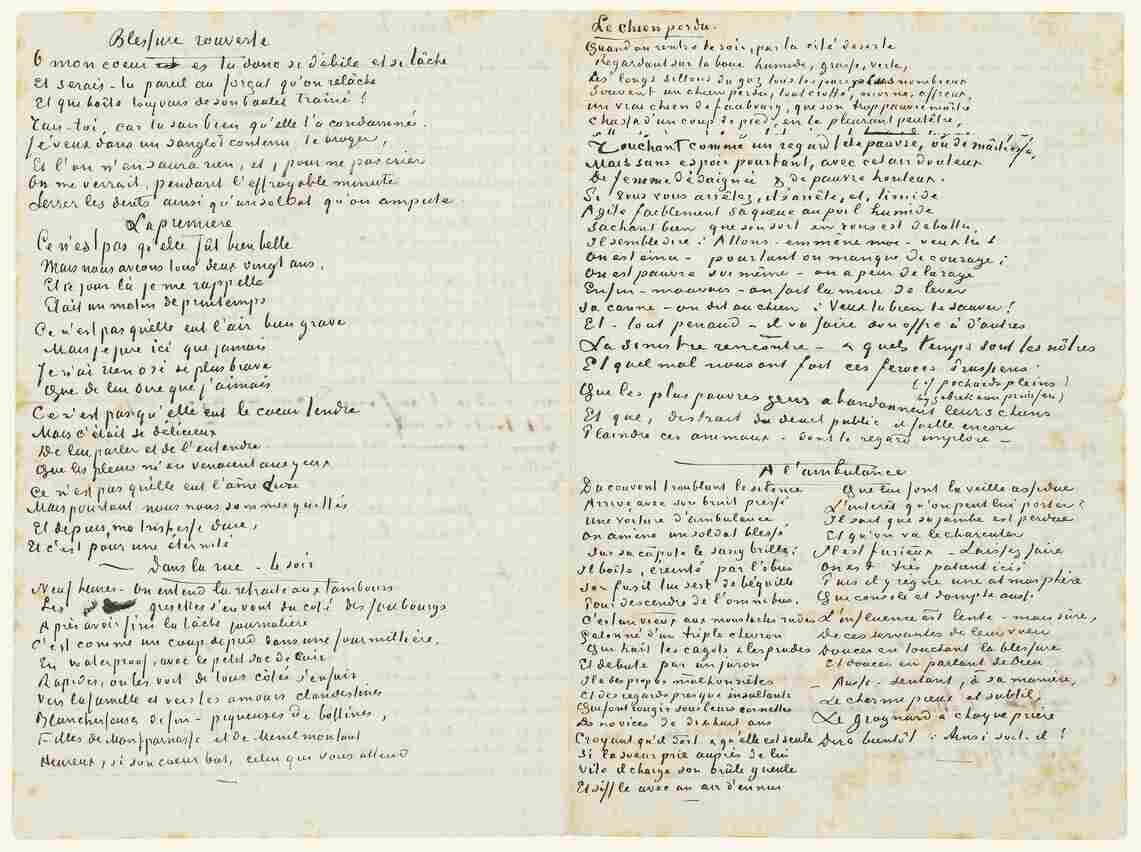 Blessure rouverte
O mon coeur es tu donc si débile et si lâche
Et serais-tu pareil au forçat qu'on relâche
Et qui boîte toujours de son boulet traîné !
Tais-toi, car tu sais bien qu'elle t'a condamné.
Je veux dans un sanglot contenu, te broyer,
Et l'on n'en saura rien, et, pour ne pas crier
On me verrait, pendant l'effroyable minute
Serrer les dents ainsi qu'un soldat qu'on ampute.
La première
Ce n'est pas qu'elle fût bien belle
Mais nous avions tous deux vingt ans,
Et ce jour là je me rappelle
Etait un matin de printemps
Ce n'est pas qu'elle eut l'air bien grave
Mais je jure ici que jamais
Je n'ai rien osé si plus brave
Que de lui dire que j'aimais
Ce n'est pas qu'elle eut le coeur tendre
Mais c'était si délicieux
De lui parler et de l'entendre
Que les pleurs m'en venaient aux yeux
Ce n'est pas qu'elle eut l'âme dure
Mais pourtant nous nous sommes quittés
Et depuis, ma tristesse dure,
Et c'est pour une éternité
Dans la rue - le soir
Neuf heures - On entend la retraite aux tambours
Les grisettes s'en vont du coté des faubourgs
Après avoir fini la tâche journalière
C'est comme un coup de pied dans une fourmillière.
En waterproof, avec le petit sac de cuir
Rapides, on les voit de tous côtés s'enfuir
Vers la famille et vers les amours clandestines
Blanchisseuses de fin - piqueuses de bottines,
Filles de Montparnasse et de Menilmontant
Heureux, si son coeur bat, celui qui vous attend
Le chien perdu.
Quand on rentre le soir, par la cité déserte
Regardant sur la boue humide, grasse, verte,
Les longs sillons du gaz tous les jours plus nombreux
Souvent un chien perdu, tout crotté, morne, affreux,
un vrai chien de faubourg, que son trop pauvre maître
Chassa d'un coup de pied, en le pleurant peutêtre,
Touchant comme un regard de pauvre, ou de maîtresse,
Mais sans espoir pourtant, avec cet air douteux
De femme dédaignée & de pauvre honteux.
Si vous vous arrêtez, il s'arrête, et, timide
Agite faiblement sa queue au poil humide
Sachant bien que son sort en vous est débattu,
Il semble dire : Allons - emmène moi - veux tu ?
On est ému - pourtant on manque de courage ;
On est pauvre soi même - on a peur de la rage
Enfin - mauvais - on fait la mine de lever
sa canne - on dit au chien : Veux tu bien te sauver !
Et - tout penaud - il va faire son offre à d'autres
La sinistre rencontre - & quels temps sont les nôtres
Et quel mal nous ont fait ces féroces Prussiens
Que les plus pauvres gens abandonnent leurs chiens
Et que, distrait du deuil public il faille encore
Plaindre ces animaux - dont le regard implore -
A l'ambulance
Du couvent troublant le silence
Arrive avec son bruit pressé
Une voiture d'ambulance
On amène un soldat blessé
Sur sa capote le sang brille ;
Il boîte, éreinté par l'obus
son fusil lui sert de béquille
Pour descendre de l'omnibus.
C'est un vieux aux moustaches rudes
Galonné d'un triple chevron
Qui hait les cagots & les prudes
Et débute par un juron
Il a des propos malhonnêtes
Et des regards presque insultants
Qui font rougir sous leurs cornettes
Des novices de dix huit ans
Croyant qu'il dort & qu'elle est seule
Si la soeur prie auprès de lui
Vite il charge son brûle gueule
Et siffle avec un air d'ennui
Que lui font la veille assidue
L'intérêt qu'on peut lui porter ?
Il sait que sa jambe est perdue
Et qu'on va le charcuter
Il est furieux - Laissez faire
On est très patient ici
Puis il y règne une atmosphère
Qui console et dompte aussi
L'influence est lente - mais sûre,
De ces servantes de leur voeu
Douces en touchant la blessure
Et douces en parlant de Dieu
- Aussi - sentant, à sa manière,
Le charme pieux et subtil,
Le grognard à chaque prière
Dira bientôt : Ainsi soit-il !